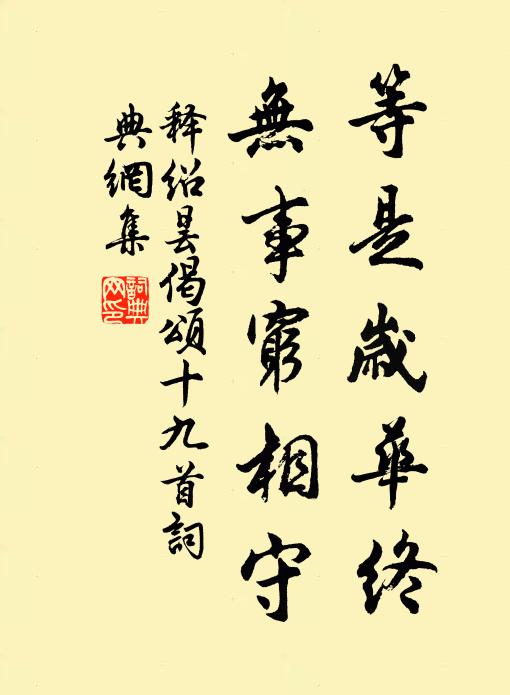 等是歲華終
無事窮相守
释绍昙偈頌十九首詞
典網集
詞典
网印